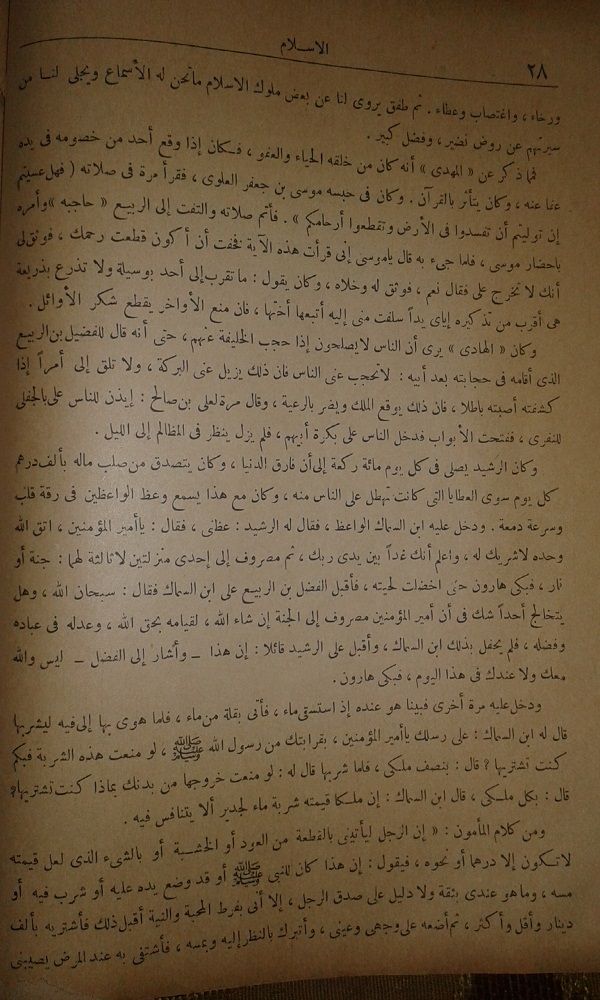 الاسلام
٢٨
ورخاء ، واغتصاب وعطاء . ثم طفق يروى لنا عن بعض ملوك الاسلام ماتحن له الأسماع ويجلى لنا من
سيرتهم عن روض نضير ، وفضل كبير .
فما ذكر عن « المهدى » أنه كان من خلقه الحياء والعفو ، فكان إذا وقع أحد من خصومه فى يده
عفا عنه ، وكان يتأثر بالقرآن . وكان فى حبسه موسى بن جعفر العلوى ، فقرأ مرة فى صلاته ( فهل عسيتم
إن توليتم أن تفسدوا فى الأرض وتقطعوا أرحامكم » . فأتم صلاته والتفت إلى الربيع « حاجبه » وأمره
باحضار موسى ، فلما جىء به قال ياموسى إنى قرأت هذه الآية فخفت أن أكون قطعت رحمك ، فوثق لى
أنك لا تخرج على فقال نعم ، فوثق له وخلاه ، وكان يقول : ما تقرب إلى أحد بوسيلة ولا تذرع بذريعة
هى أقرب من تذكيره إياى يداً سلفت منى إليه أتبعها أختها ، فان منع الأواخر يقطع شكر الأوائل .
وكان « الهادى » يرى أن الناس لايصلحون إذا حجب الخليفة عنهم ، حتى أنه قال للفضيل بن الربيع
الذى أقامه فى حجابته بعد أبيه : لاتحجب عنى الناس فان ذلك يزيل عنى البركة ، ولا تلق إلى أمراً إذا
كشفته أصبته باطلا ، فان ذلك يوقع الملك ويضر بالرعية ، وقال مرة لعلى بن صالح : إيذن للناس على بالجفلى
للنفرى ، ففتحت الأبواب فدخل الناس على بكرة أبيهم ، فلم يزل ينظر فى المظالم إلى الليل .
وكان الرشيد يصلى فى كل يوم مائة ركعة إلى أن فارق الدنيا ، وكان يتصدق من صلب ماله بألف درهم
كل يوم سوى العطايا التى كانت تهطل على الناس منه ، وكان مع هذا يسمع وعظ الواعظين فى رقة قلب
وسرعة دمعة . ودخل عليه ابن السماك الواعظ ، فقال له الرشيد : عظنى ، فقال : ياأمير المؤمنين ، اتق الله
وحده لاشريك له ، واعلم أنك غداً بين يدى ربك ، ثم مصروف إلى إحدى منزلتين لاثالثة لهما : جنة أو
نار ، فبكى هارون حتى اخضلت لحيته ، فأقبل الفضل بن الربيع على ابن السماك فقال : سبحان الله ، وهل
يتخالج أحداً شك فى أن أمير المؤمنين مصروف إلى الجنة إن شاء الله ، لقيامه بحق الله ، وعدله فى عباده
وفضله ، فلم يحفل بذلك ابن السماك ، وأقبل على الرشيد قائلا : إن هذا ــ وأشار إلى الفضل ــ ليس والله
معك ولا عندك فى هذا اليوم ، فبكى هارون .
ودخل عليه مرة أخرى فبينا هو عنده إذ استسقى ماء ، فأتى بقلة من ماء ، فلما هوى بها إلى فيه ليشربها
قال له ابن السماك : على رسلك ياأمير المؤمنين ، بقرابتك من رسول الله ﷺ ، لو منعت هذه الشربة فبكم
كنت تشتريها ؟ قال : بنصف ملكى ، فلما شربها قال له : لو منعت خروجها من بدنك بماذا كنت تشتريها؟
قال : بكل ملكى ، قال ابن السماك : إن ملكا قيمته شربة ماء لجدير ألا يتنافس فيه .
ومن كلام المأمون : « إن الرجل ليأتينى بالقطعة من العود أو الخشبة أو بالشىء الذى لعل قيمته
لاتكون إلا درهما أو نحوه ، فيقول : إن هذا كان للنبى ﷺ أو قد وضع يده عليه أو شرب فيه أو
مسه ، وماهو عندى بثقة ولا دليل على صدق الرجل ، إلا أنى بفرط المحبة والنية أقبل ذلك فأشتريه بألف
دينار وأقل وأكثر ، ثم أضعه على وجهى وعينى ، وأتبرك بالنظر إليه وبمسه ، فأستشفى به عند المرض يصيبنى